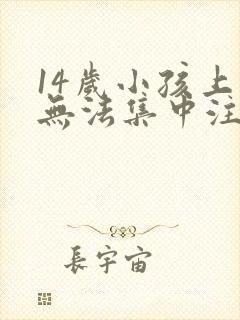 14歲小孩上
無法集中注
長宇宙